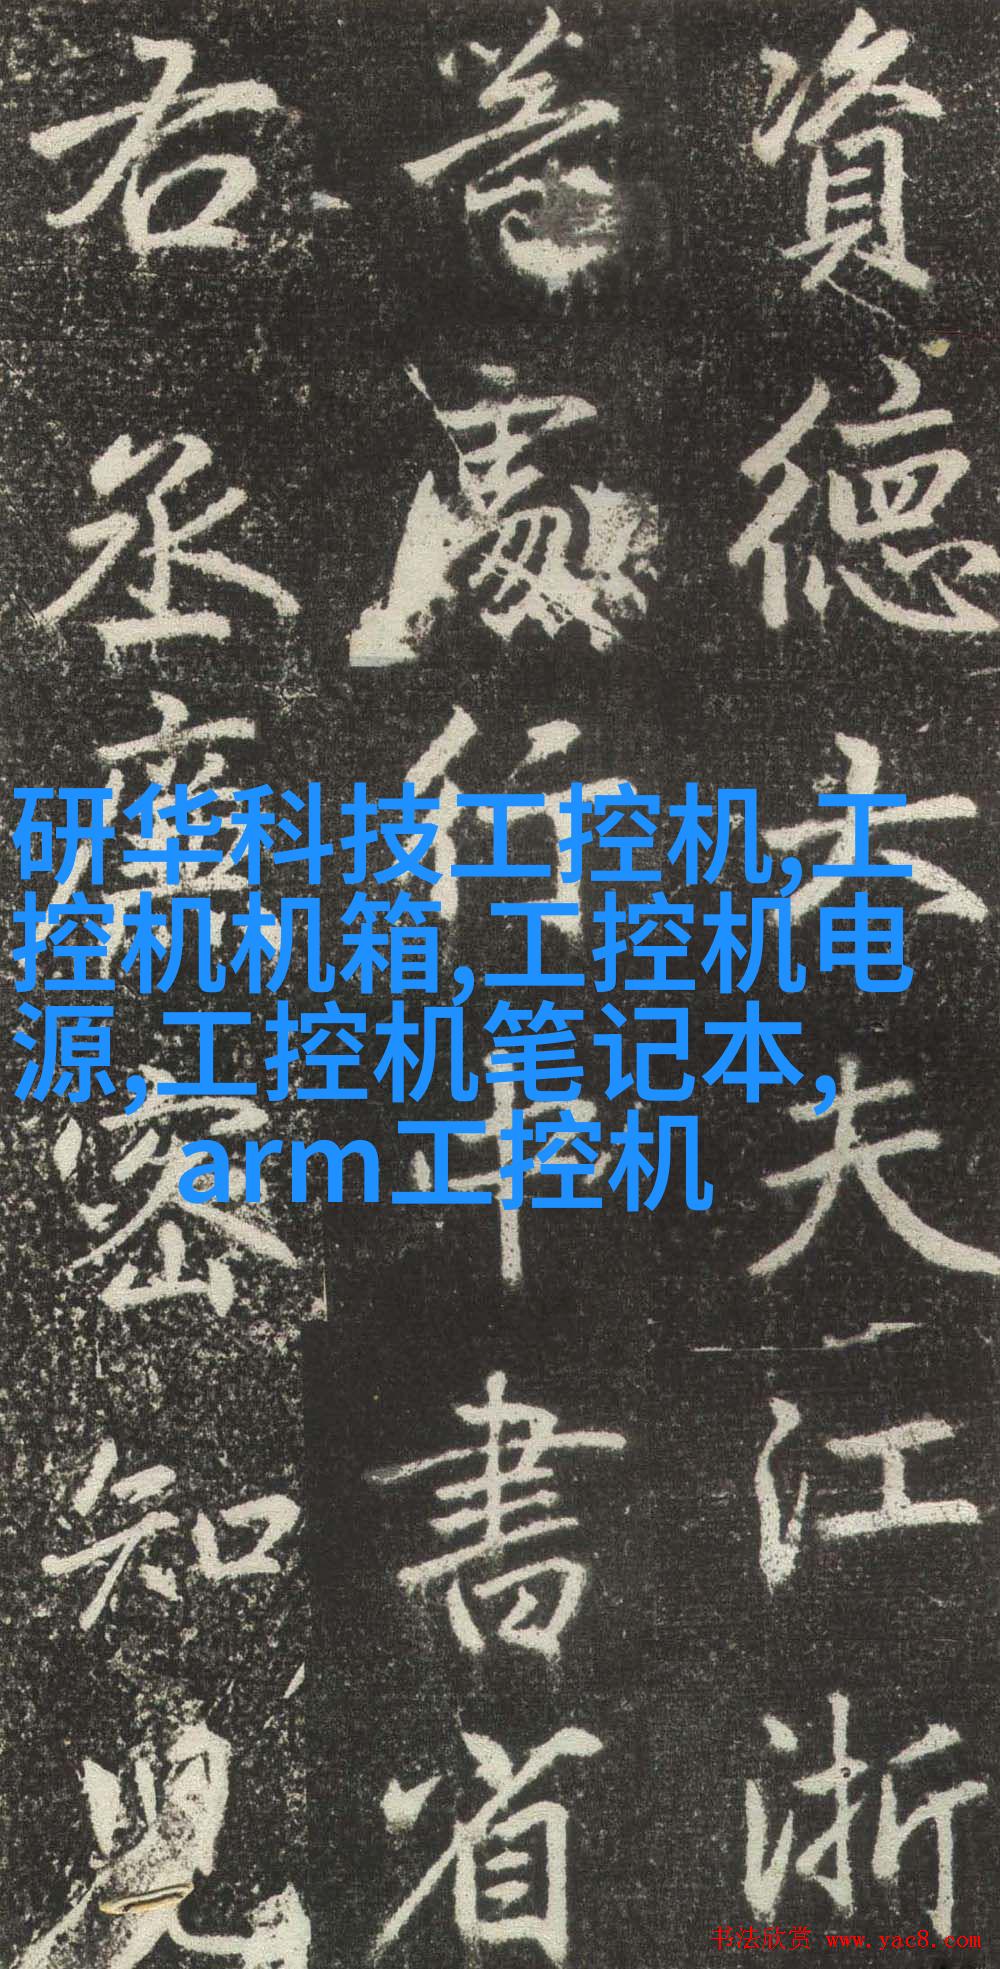 資德大夫江浙
等處行中書省
右丞廉密知兒
研华科技工控机,工
控机机箱,工控机电
源,工控机笔记本,
arm工控机
书法欣赏 www.yac8.com